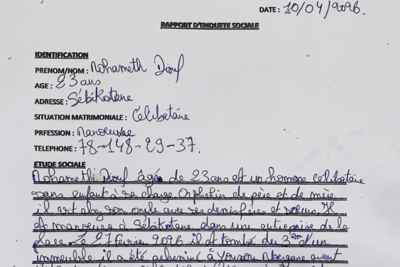 DATE : 10/04/2026.
RAPPORT D'ENQUETE SOCIALE
IDENTIFICATION
PRENOM/NOM : Mohameth Diouf
AGE : 23 ans
ADRESSE : Sébikotane
SITUATION MATRIMONIALE : Célibataire
PRFESSION : Manœuvre
TELEPHONE : 78-148-29-37.
ETUDE SOCIALE
Mohameth Diouf âgé de 23 ans et un homme celibataire
sans enfant à sa charge Orphelin de père et de mère
il est chez son oncle avec ses
et manœuvre à Sébikotane dans une entreprise de la
place. Le 27 février 2026 il est tombé du 3e d'un
immeuble il a été acheminé à